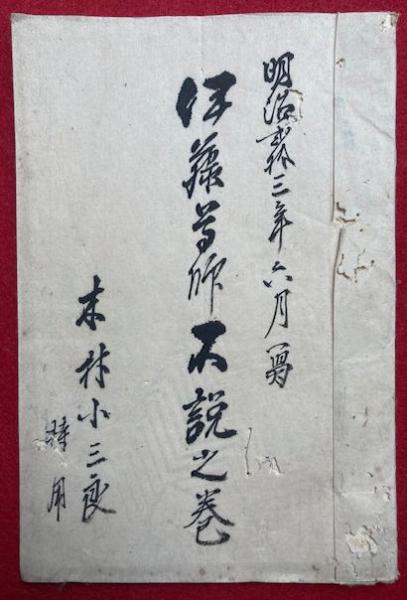 明治弐拾三年六月写
伊藤等師不説之巻
木村小三良
持用